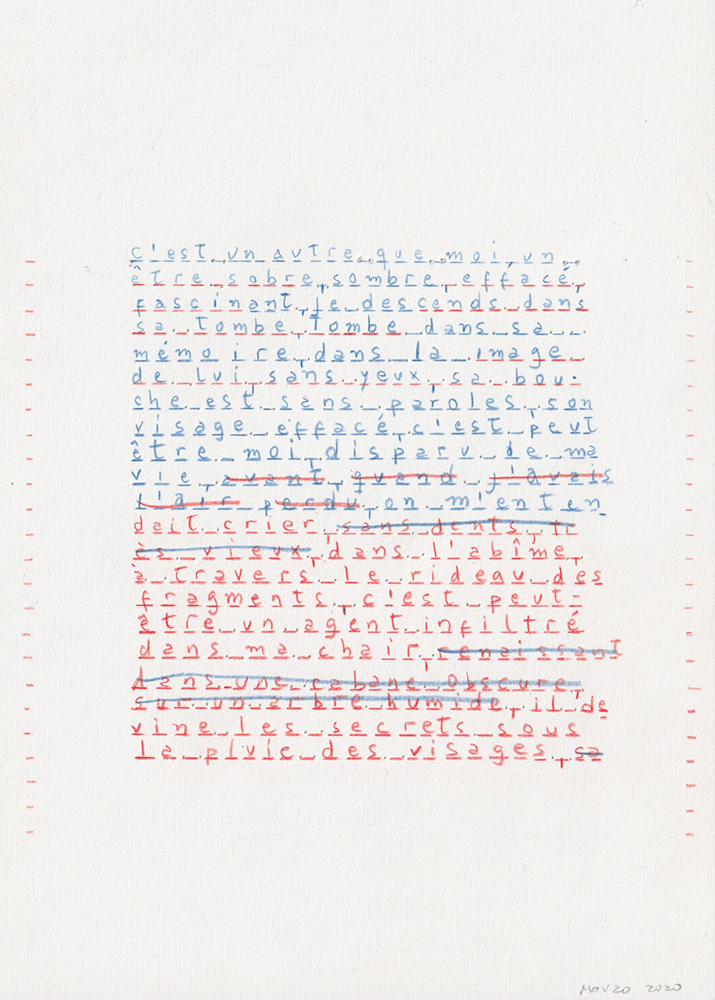 c'est un autre que moi, un
être sobre, sombre, effacé,
fascinant, je descends dans
sa tombe, tombe dans sa
mémoire, dans la image
de lui, sans yeux, sa bou-
che est sans paroles, son
visage effacé, c'est peut
être moi, disparu de ma
vie, avant, quand j'avais
l'air perdu, on m'enten
dait crier, sans dents, tr
ès vieux, dans l'abîme,
à travers le rideau des
fragments, c'est peut-
être un agent infiltré
dans ma chair, renaissant
dans une cabane obscure,
sur un arbre humide, il de
vine les secrets sous
la pluie des visages, sa
marzo 2020